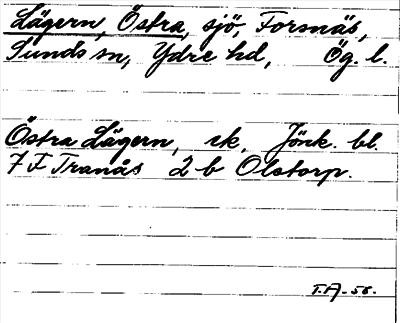 Lägern, Östra, sjö, Forsnäs,
Sunds sn, Ydre hd, Ög. l.
Östra Lägern, rk, Jönk. bl.
7 F Tranås 2 b Olstorp.
T.A. -56.